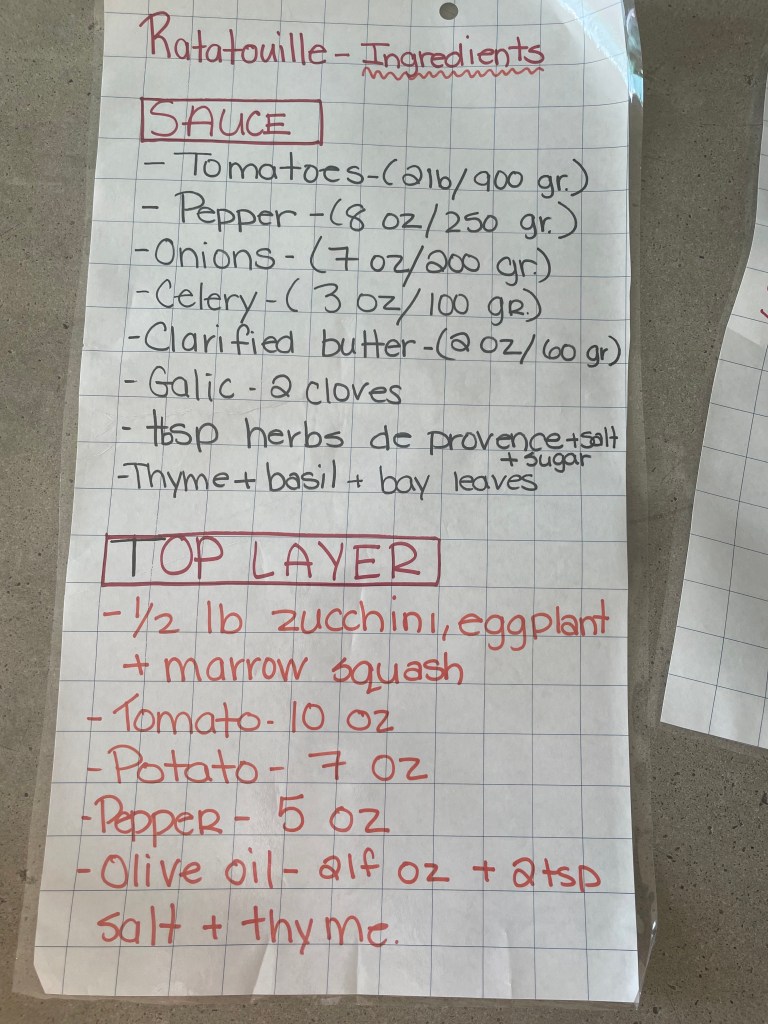 Ratatouille - Ingredients
SAUCE
- Tomatoes - (2lb/900 gr.)
- Pepper - (8 oz/250 gr.)
- Onions - (7 oz/200 gr.)
- Celery - (3 oz/100 gR.)
- Clarified butter - (2 oz/60 gr)
- Galic - 2 cloves
- tbsp herbs de provence + salt
+ sugar
- Thyme + basil + bay leaves
TOP LAYER
- 1/2 lb zucchini, eggplant
+ marrow squash
- Tomato - 10 oz
- Potato - 7 oz
- PeppeR - 5 oz
- Olive oil - oz + 2 tsp
salt + thyme.